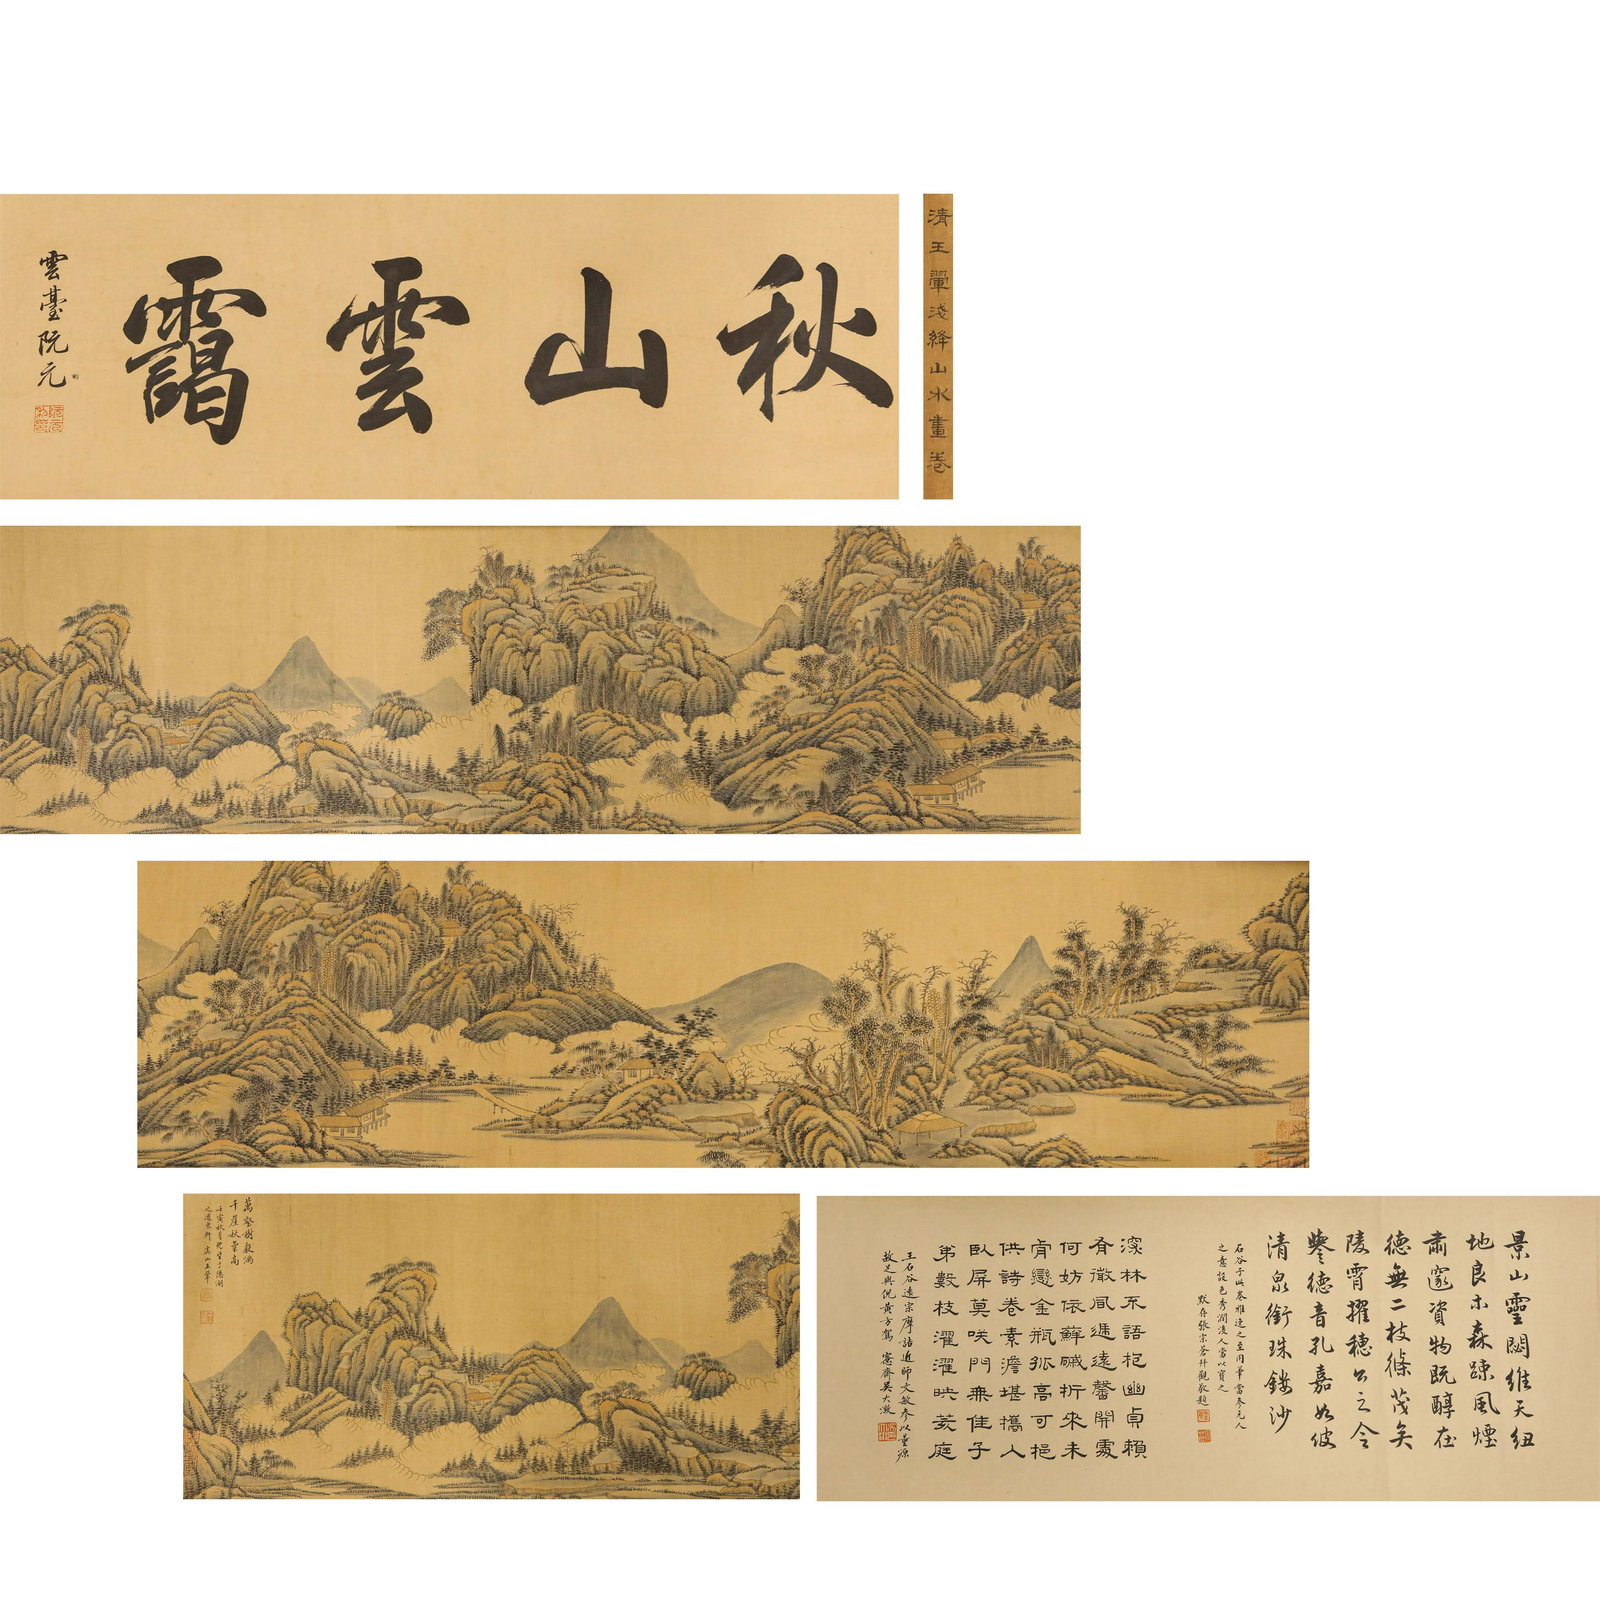 秋山雲靄
雲臺阮元
清王翬淺絳山水畫卷
萬壑樹聲滿
千崖秋氣高
之道東軒 虞山王翬
景山靈閟維天紐
地良木森疎風煙
肅邃資物既醇在
德無二枝條茂矣
陵霄擢穗公之令
譽德音孔嘉如彼
清泉銜珠鏤沙
石谷子此卷雅逸之至用筆當參元人
之意設色秀潤後人當以寶之
默存張宗蒼拜觀敬題
深林不語抱幽貞賴
有微風遞遠馨開處
何妨依蘚砌折來未
肯戀金瓶孤高可挹
供詩卷素澹堪攜人
臥屏莫咲門無佳子
弟數枝濯濯映芰庭
王石谷遠宗摩詰近師文敏參以董源
故足與倪黃方駕 愙齋吳大澂